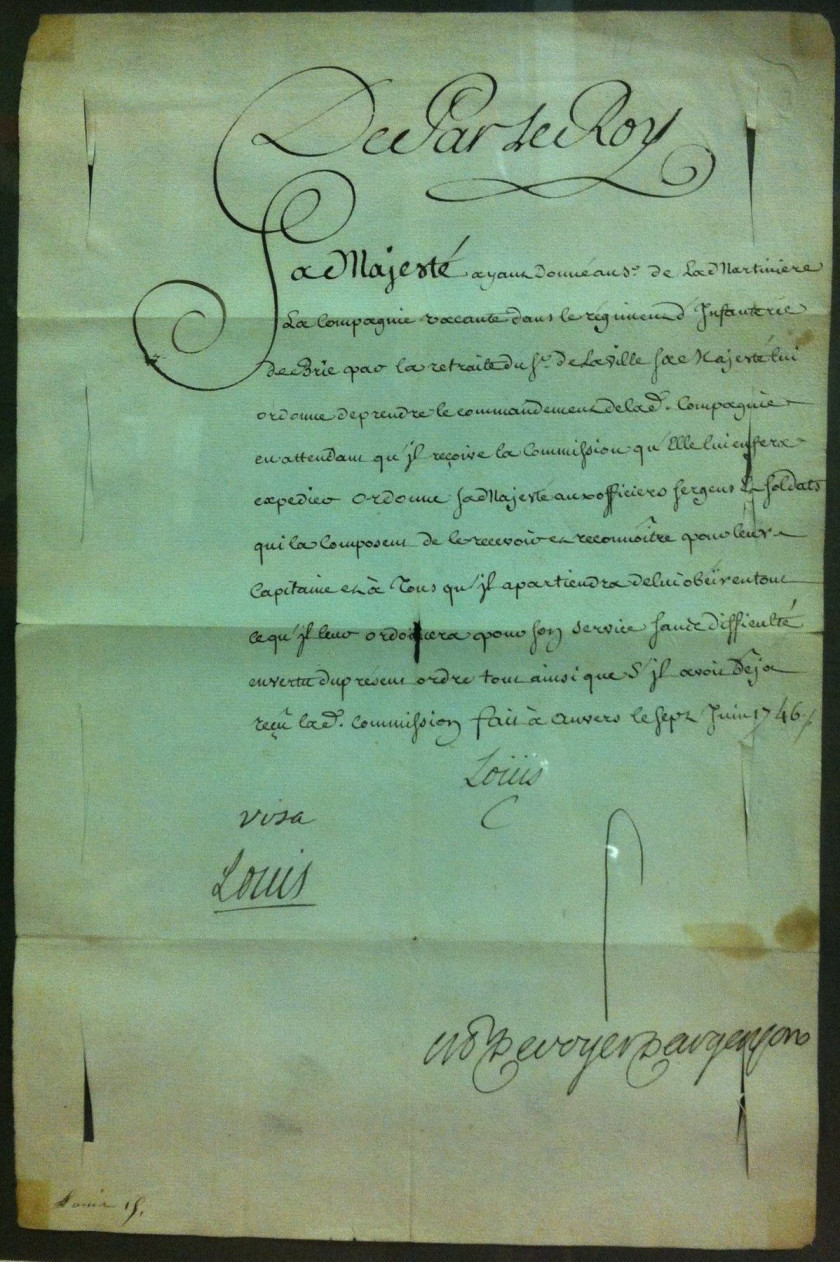 De Par Le Roy
Sa Majesté ayant donné au Sr. de La Martiniere
La Compagnie vacante dans le régiment d'Infanterie
de Brie par la retraite du Sr. de Laville Sa Majesté lui
ordonne de prendre le commandement de lad. Compagnie
en attendant qu'jl reçoive la Commission qu'Elle lui en fera
expedier ordonne Sa Majesté aux officiers sergens & soldats
qui la composent de le recevoir et reconnoître pour leur
Capitaine et à Tous qu'jl apartiendra de lui obéïr en tout
ce qu'jl leur ordonnera pour son service sans difficulté
en vertu du présent ordre tout ainsi que S'jl avoit déja
reçû lad. Commission fait à Anvers le sept Juin 1746
Loüis
visa
Louis
De voyer Dargenson
Louis 15.